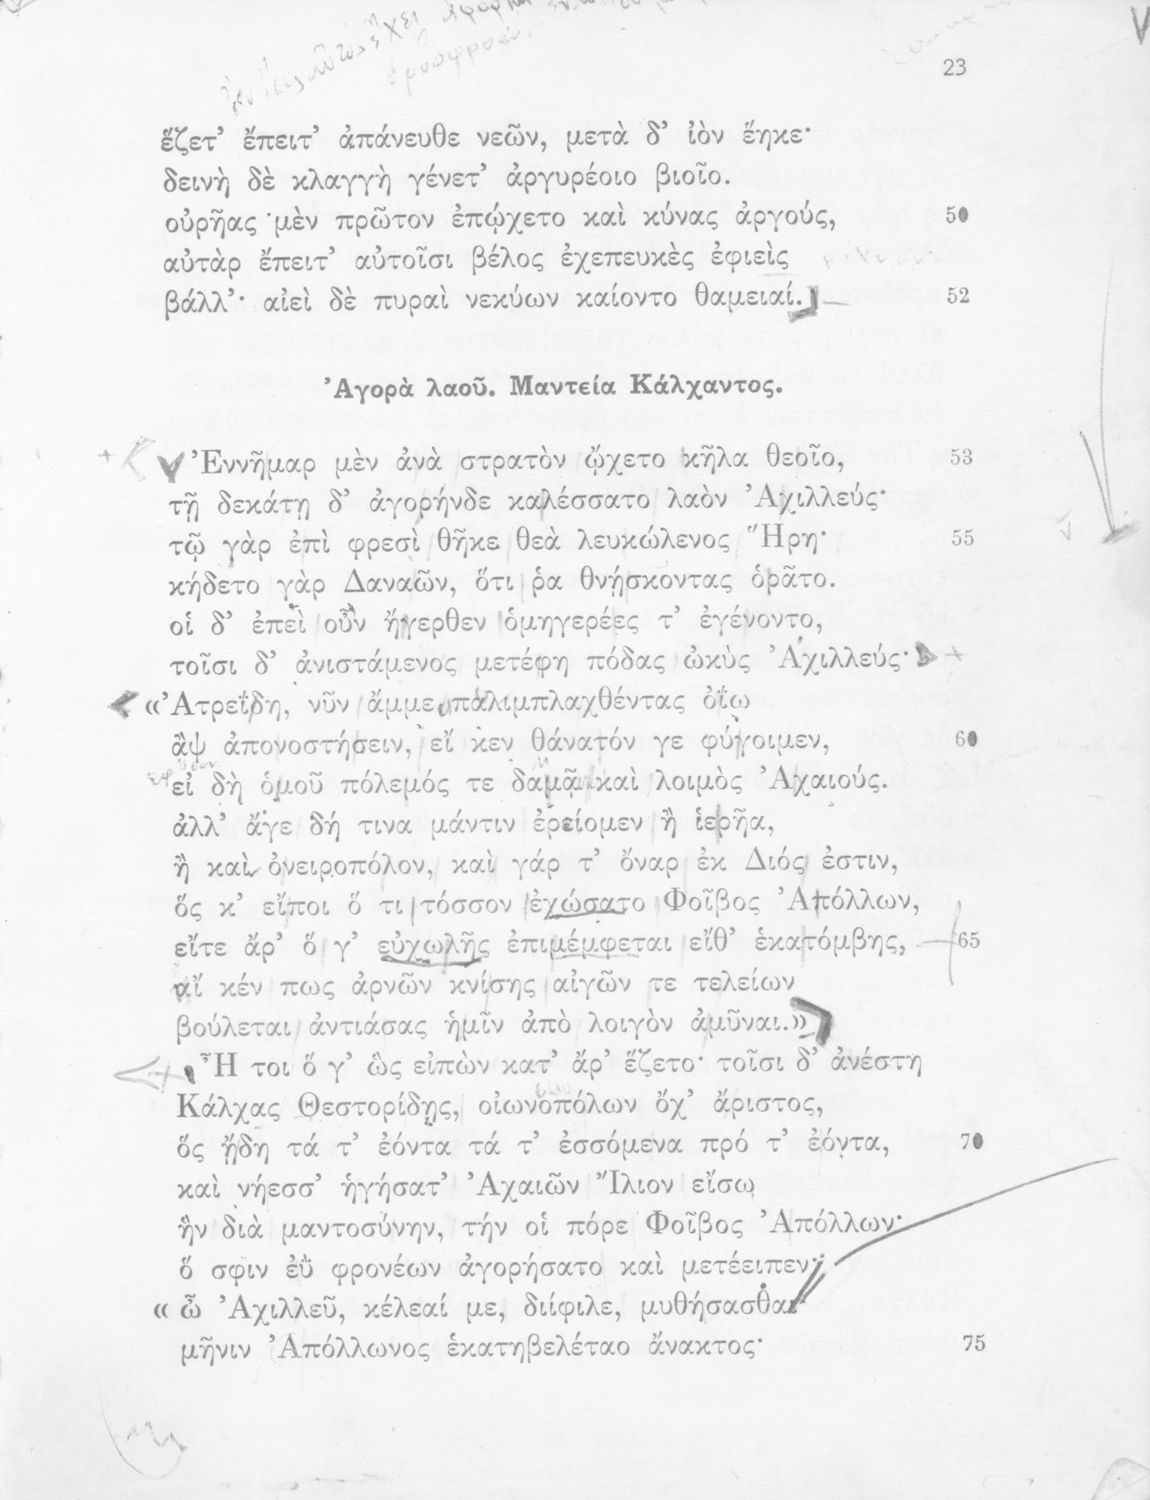 23
ἕζετ’ ἔπειτ’ ἀπάνευθε νεῶν, μετὰ δ’ ἰὸν ἕηκε·
δεινὴ δὲ κλαγγὴ γένετ’ ἀργυρέοιο βιοῖο.
οὐρῆας μὲν πρῶτον ἐπῴχετο καὶ κύνας ἀργούς, 50
αὐτὰρ ἔπειτ’ αὐτοῖσι βέλος ἐχεπευκὲς ἐφιεὶς
βάλλ’· αἰεὶ δὲ πυραὶ νεκύων καίοντο θαμειαί. 52
Ἀγορὰ λαοῦ. Μαντεία Κάλχαντος.
Ἐννῆμαρ μὲν ἀνὰ στρατὸν ᾤχετο κῆλα θεοῖο, 53
τῇ δεκάτῃ δ’ ἀγορήνδε καλέσσατο λαὸν Ἀχιλλεύς·
τῷ γὰρ ἐπὶ φρεσὶ θῆκε θεὰ λευκώλενος Ἥρη· 55
κήδετο γὰρ Δαναῶν, ὅτι ῥα θνήσκοντας ὁρᾶτο.
οἱ δ’ ἐπεὶ οὖν ἤγερθεν ὁμηγερέες τ’ ἐγένοντο,
τοῖσι δ’ ἀνιστάμενος μετέφη πόδας ὠκὺς Ἀχιλλεύς·
«Ἀτρεΐδη, νῦν ἄμμε παλιμπλαχθέντας ὀΐω
ἂψ ἀπονοστήσειν, εἴ κεν θάνατόν γε φύγοιμεν, 60
εἰ δὴ ὁμοῦ πόλεμός τε δαμᾷ καὶ λοιμὸς Ἀχαιούς.
ἀλλ’ ἄγε δή τινα μάντιν ἐρείομεν ἢ ἱερῆα,
ἢ καὶ ὀνειροπόλον, καὶ γάρ τ’ ὄναρ ἐκ Διός ἐστιν,
ὅς κ’ εἴποι ὅ τι τόσσον ἐχώσατο Φοῖβος Ἀπόλλων,
εἴτε ἄρ’ ὅ γ’ εὐχωλῆς ἐπιμέμφεται εἴθ’ ἑκατόμβης, 65
αἴ κέν πως ἀρνῶν κνίσης αἰγῶν τε τελείων
βούλεται ἀντιάσας ἡμῖν ἀπὸ λοιγὸν ἀμῦναι.»
Ἦ τοι ὅ γ’ ὣς εἰπὼν κατ’ ἄρ’ ἕζετο· τοῖσι δ’ ἀνέστη
Κάλχας Θεστορίδης, οἰωνοπόλων ὄχ’ ἄριστος,
ὃς ᾔδη τά τ’ ἐόντα τά τ’ ἐσσόμενα πρό τ’ ἐόντα, 70
καὶ νήεσσ’ ἡγήσατ’ Ἀχαιῶν Ἴλιον εἴσω
ἣν διὰ μαντοσύνην, τήν οἱ πόρε Φοῖβος Ἀπόλλων·
ὅ σφιν ἐῢ φρονέων ἀγορήσατο καὶ μετέειπεν·
«ὦ Ἀχιλλεῦ, κέλεαί με, διίφιλε, μυθήσασθαι
μῆνιν Ἀπόλλωνος ἑκατηβελέταο ἄνακτος· 75